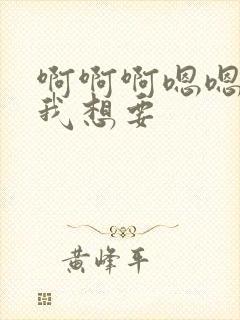 啊啊啊嗯嗯
我想要
黄峰平